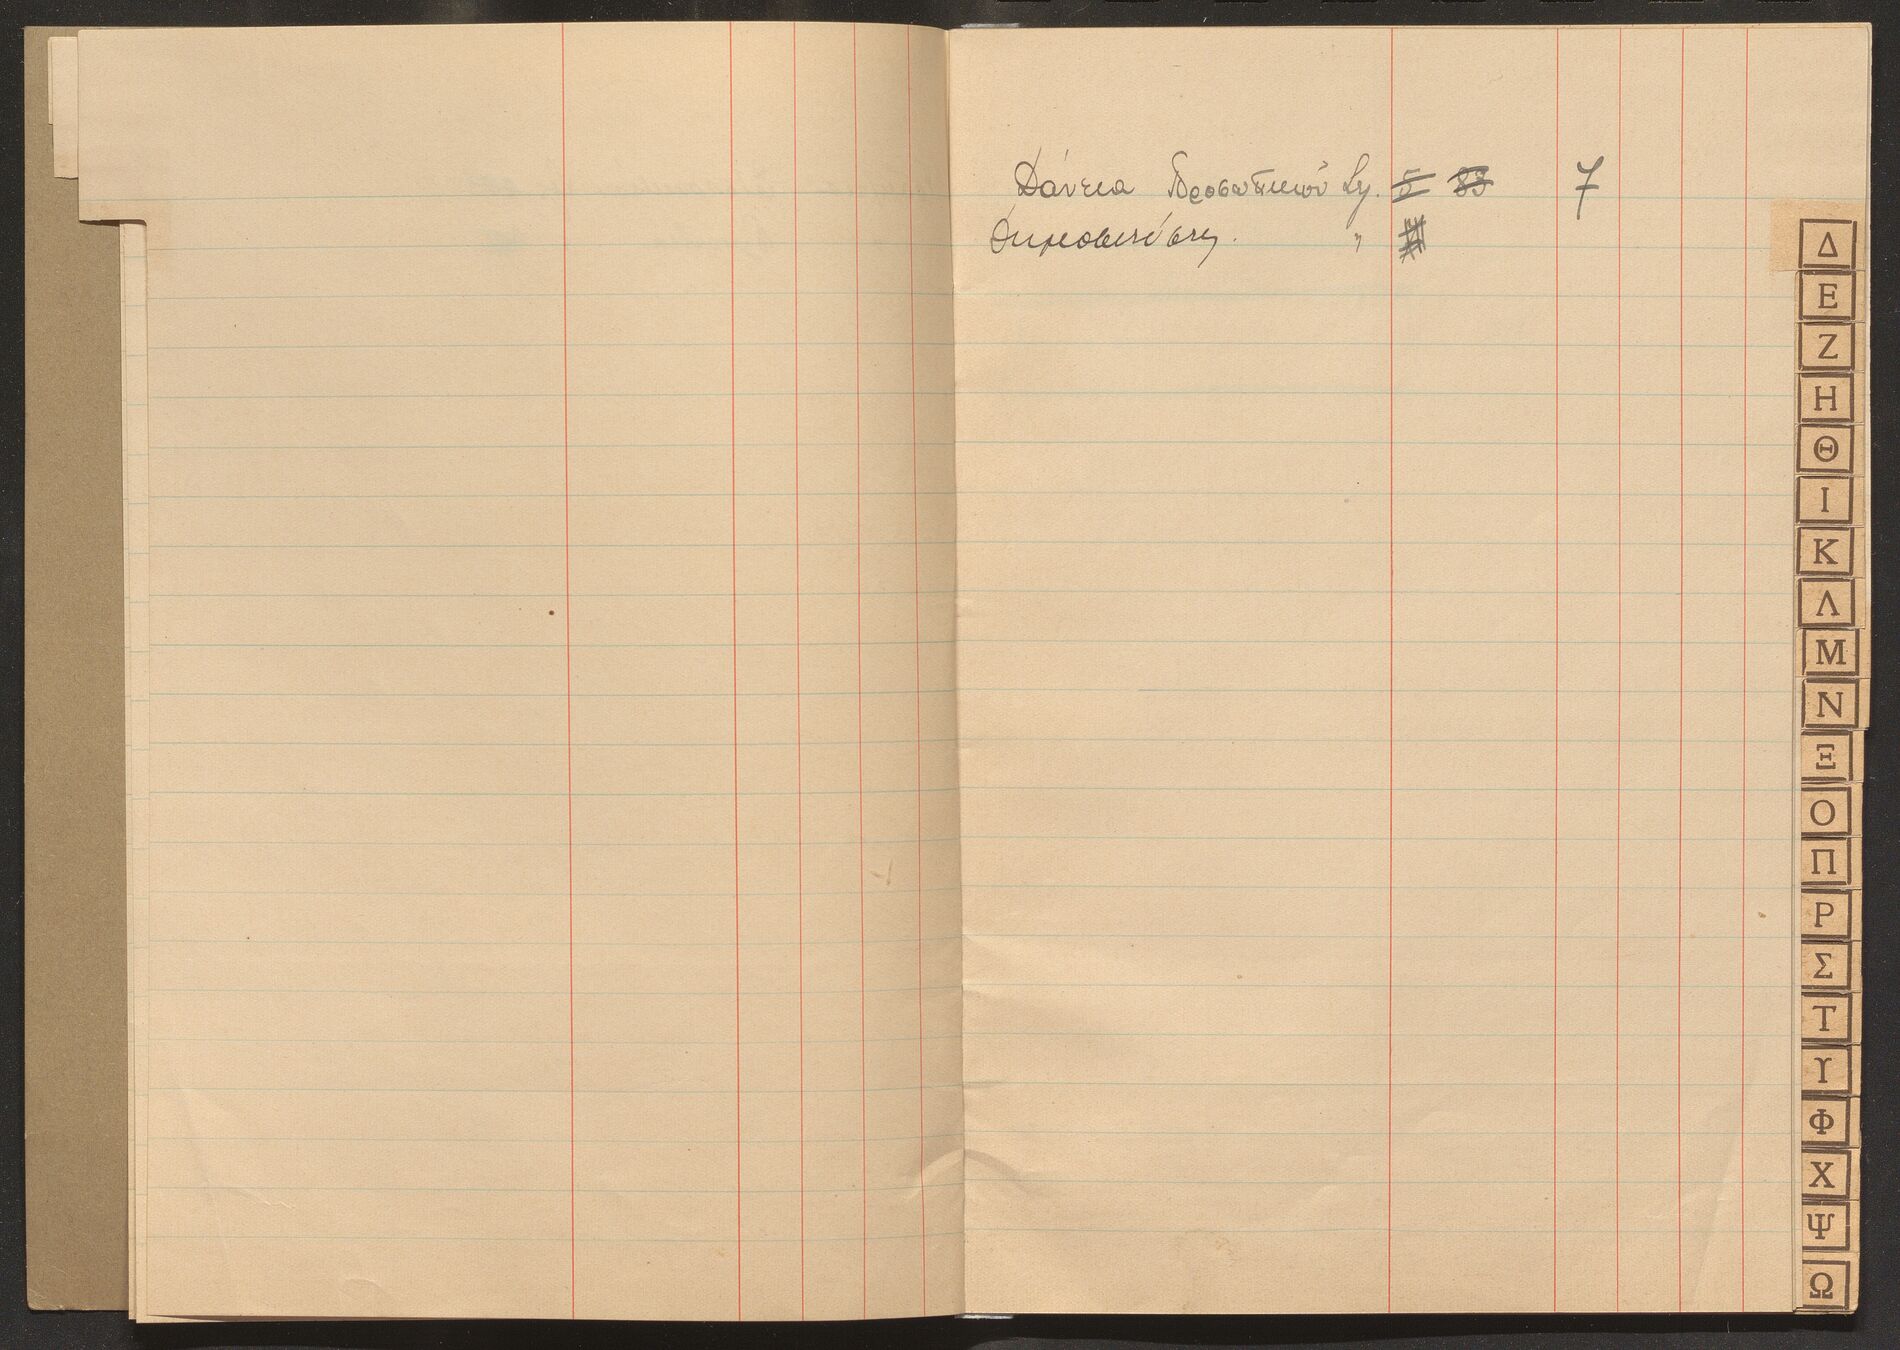 Δάνεια Προσωπικού Σ/. 5 83 7
Δημοσιεύσεις. "
Δ
Ε
Ζ
Η
Θ
Ι
Κ
Λ
Μ
Ν
Ξ
Ο
Π
Ρ
Σ
Τ
Υ
Φ
Χ
Ψ
Ω